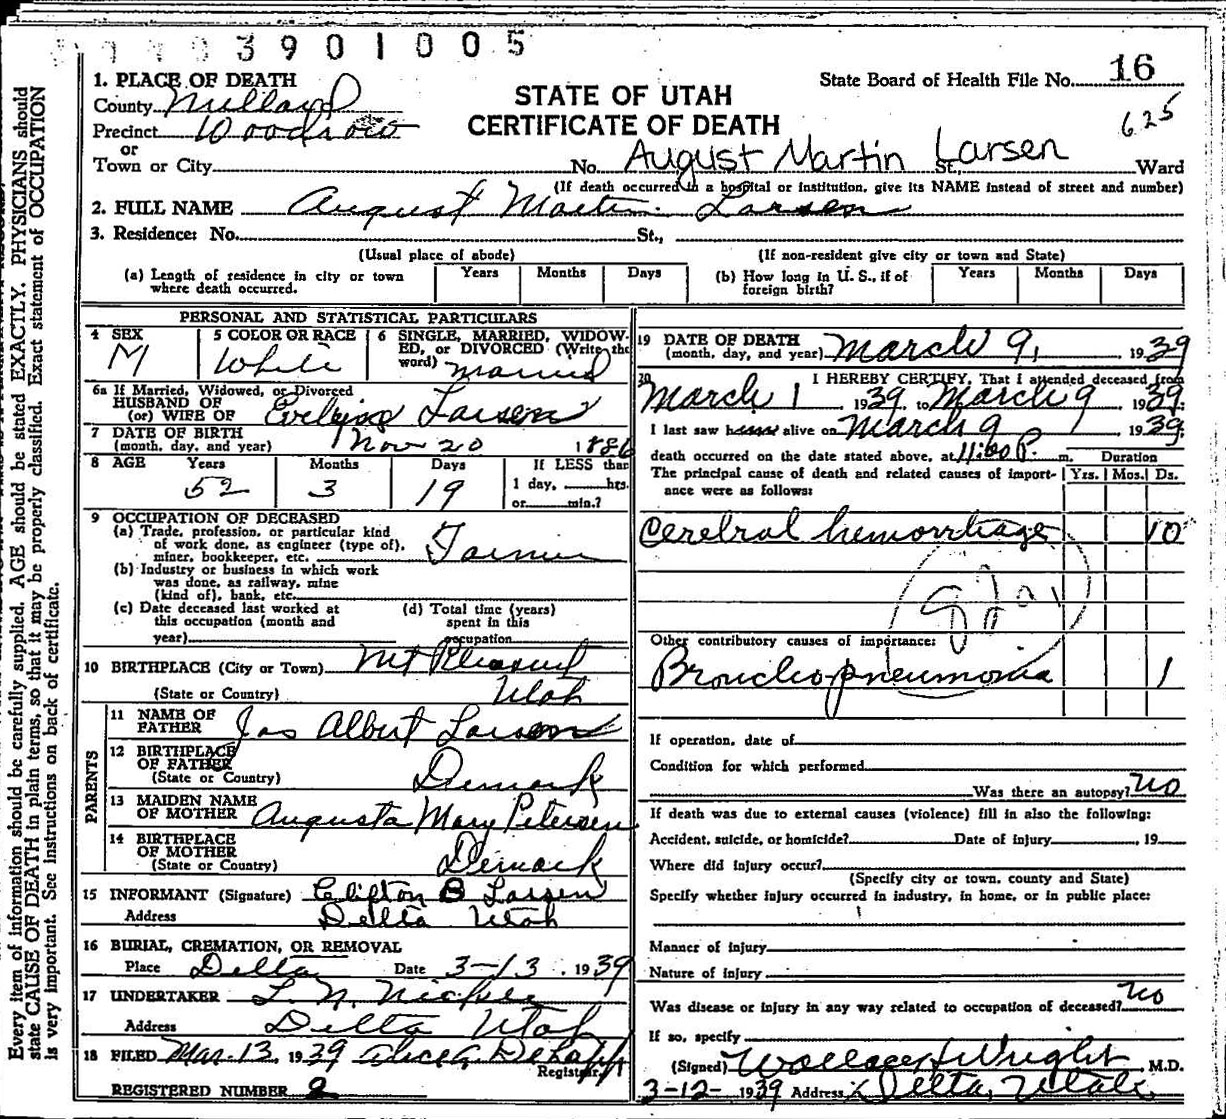 3901005
1. PLACE OF DEATH
County Millard
Precinct Woodrow
or
Town or City
STATE OF UTAH
CERTIFICATE OF DEATH
State Board of Health File No. 16
625
No. August Martin Larsen St., Ward
(If death occurred in a hospital or institution, give its NAME instead of street and number)
2. FULL NAME August Martin Larsen
3. Residence: No. St.,
(Usual place of abode) (If non-resident give city or town and State)
(a) Length of residence in city or town where death occurred. Years Months Days
(b) How long in U. S., if of foreign birth? Years Months Days
PERSONAL AND STATISTICAL PARTICULARS
4 SEX
M
5 COLOR OR RACE
White
6 SINGLE, MARRIED, WIDOWED, or DIVORCED (Write the word) Married
6a If Married, Widowed, or Divorced
HUSBAND OF
(or) WIFE OF Larsen
7 DATE OF BIRTH
(month, day, and year) Nov 20 1886
8 AGE Years Months Days If LESS than
52 3 19 1 day, hrs.
or min.?
9 OCCUPATION OF DECEASED
(a) Trade, profession, or particular kind
of work done, as engineer (type of),
miner, bookkeeper, etc. Farmer
(b) Industry or business in which work
was done, as railway, mine
(kind of), bank, etc.
(c) Date deceased last worked at
this occupation (month and
year)
(d) Total time (years)
spent in this
occupation
10 BIRTHPLACE (City or Town) Mt Pleasant
(State or Country) Utah
PARENTS
11 NAME OF
FATHER Jas Albert Larsen
12 BIRTHPLACE
OF FATHER
(State or Country) Demark
13 MAIDEN NAME
OF MOTHER Augusta Mary Petersen
14 BIRTHPLACE
OF MOTHER
(State or Country) Demark
15 INFORMANT (Signature) Clifton B Larsen
Address Delta Utah
16 BURIAL, CREMATION, OR REMOVAL
Place Delta Date 3-13, 1939
17 UNDERTAKER L. N.
Address Delta Utah
18 FILED Mar. 13, 1939 Alice G.
Registrar.
REGISTERED NUMBER 2
19 DATE OF DEATH
(month, day, and year) March 9, 1939
20 I HEREBY CERTIFY, That I attended deceased from
March 1, 1939, to March 9, 1939.
I last saw h alive on March 9, 1939,
death occurred on the date stated above, at 11:00 P. m. Duration
The principal cause of death and related causes of importance were as follows: Yrs. Mos. Ds.
Cerebral hemorrhage 10
Other contributory causes of importance:
Bronchopneumonia 1
If operation, date of
Condition for which performed
Was there an autopsy? No
If death was due to external causes (violence) fill in also the following:
Accident, suicide, or homicide? Date of injury , 19
Where did injury occur?
(Specify city or town, county and State)
Specify whether injury occurred in industry, in home, or in public place:
Manner of injury
Nature of injury
Was disease or injury in any way related to occupation of deceased? No
If so, specify
(Signed) Wallace Wright M.D.
3-12-1939 Address Delta, Utah
Every item of information should be carefully supplied. AGE should be stated EXACTLY. PHYSICIANS should
state CAUSE OF DEATH in plain terms, so that it may be properly classified. Exact statement of OCCUPATION
is very important. See instructions on back of certificate.